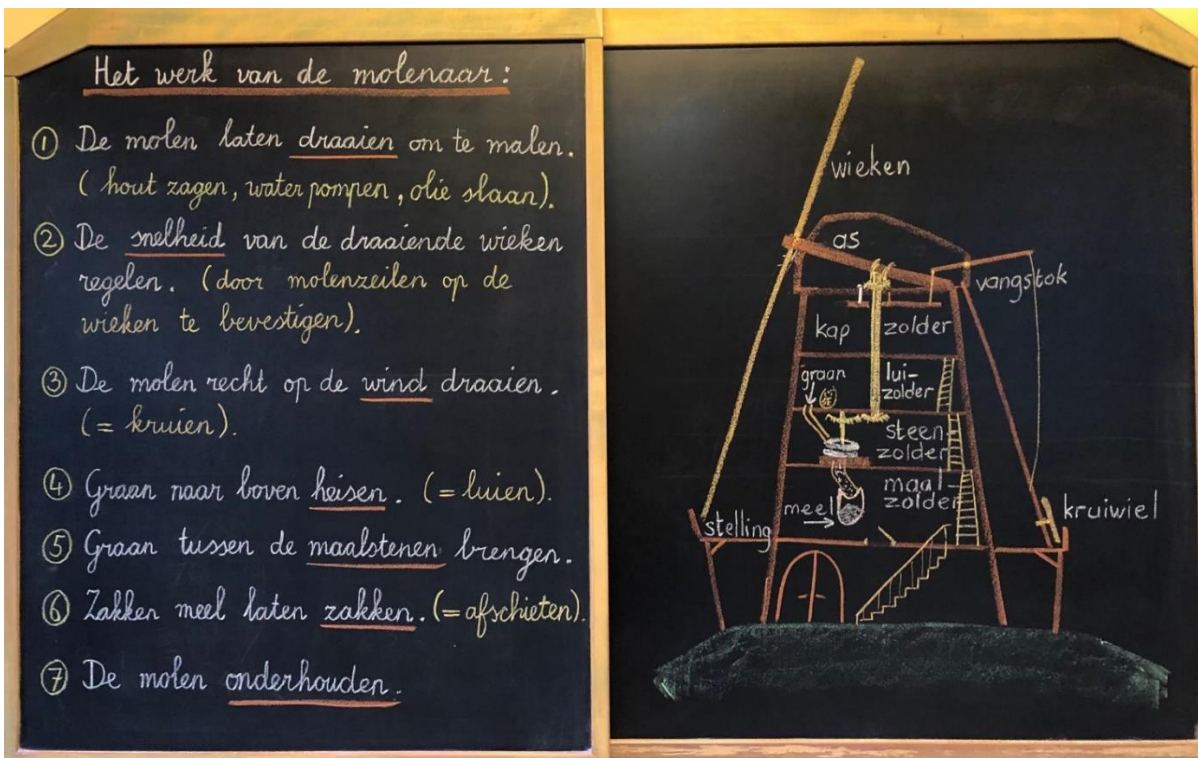 Het werk van de molenaar:
① De molen laten draaien om te malen.
( hout zagen, water pompen, olie slaan).
② De snelheid van de draaiende wieken
regelen. (door molenzeilen op de
wieken te bevestigen).
③ De molen recht op de wind draaien.
(= kruien).
④ Graan naar boven heisen. (= luien).
⑤ Graan tussen de maalstenen brengen.
⑥ Zakken meel laten zakken. (= afschieten).
⑦ De molen onderhouden.
wieken
as
vangstok
kap zolder
graan
lui-
zolder
steen-
zolder
maal-
zolder
meel
stelling
kruiwiel